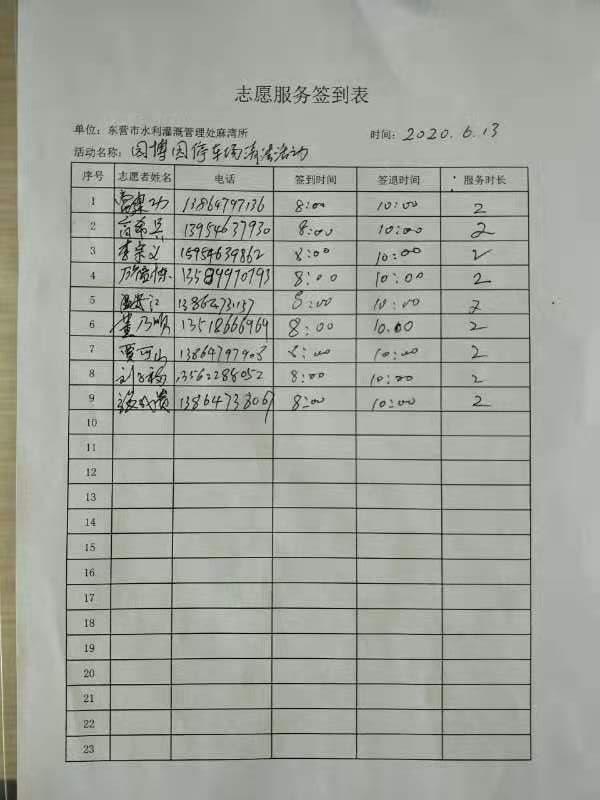 志愿服务签到表
单位：东营市水利灌溉管理处麻湾所 时间：2020.6.13
活动名称：园博园停车场清洁活动
序号 志愿者姓名 电话 签到时间 签退时间 服务时长
1 13864797136 8:00 10:00 2
2 13954637930 8:00 10:00 2
3 李宗义 15954639862 8:00 10:00 2
4 8:00 10:00 2
5 8:00 10:00 2
6 董乃顺 13518666969 8:00 10.00 2
7 贾可山 8:00 10:00 2
8 13562288052 8:00 10:00 2
9 13864738067 8:00 10:00 2
10
11
12
13
14
15
16
17
18
19
20
21
22
23